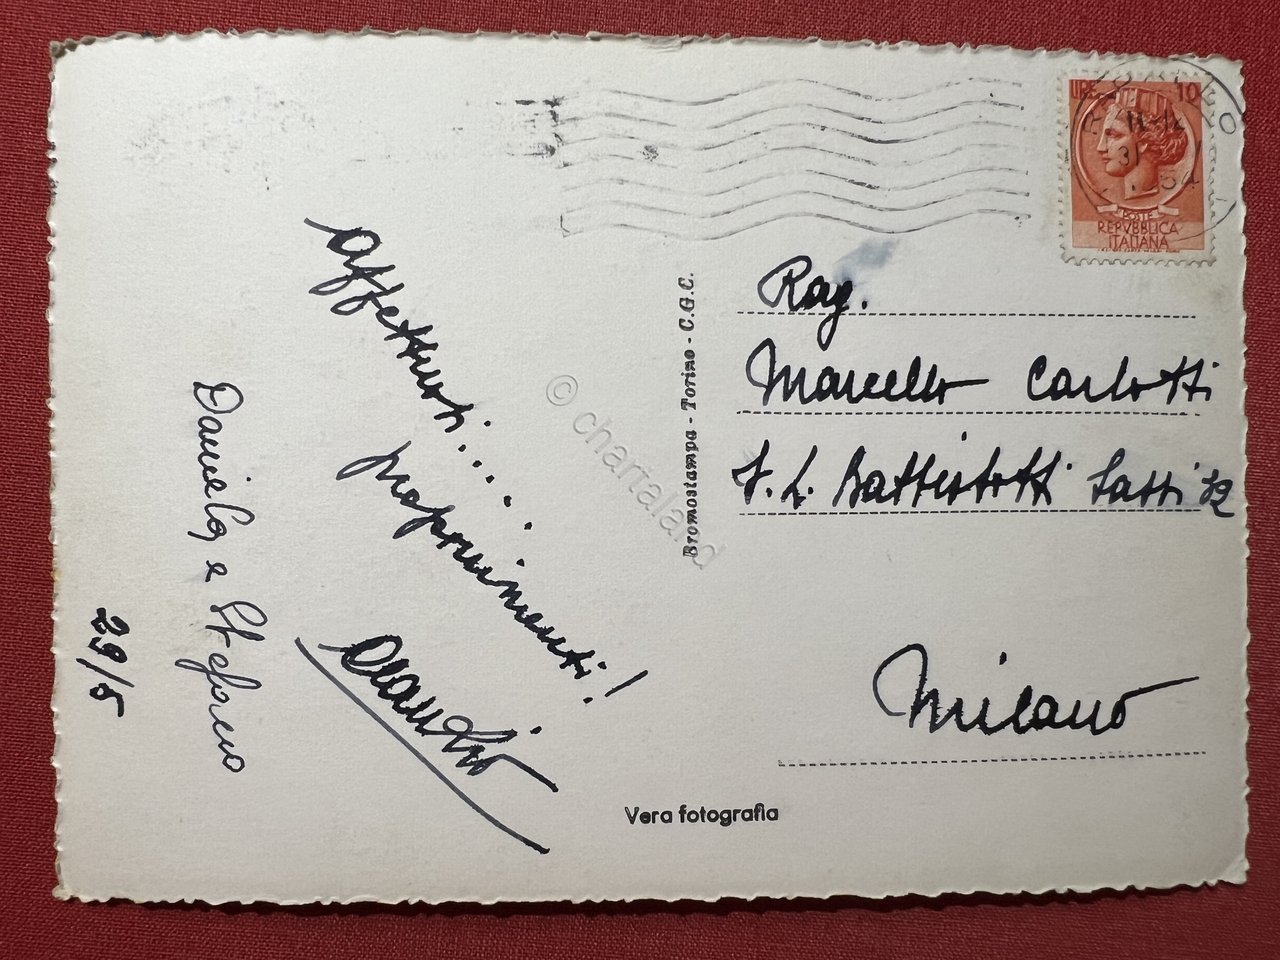 LIRE 10
POSTE
REPVBBLICA
ITALIANA
Rag.
Marcello Carlotti
V. L. Battistotti Sassi 32
Milano
Affettuosi....
propruimenti!
Daniela e Stefano
29/5
Bromostampa - Torino - C.G.C.
Vera fotografia
© chartaland